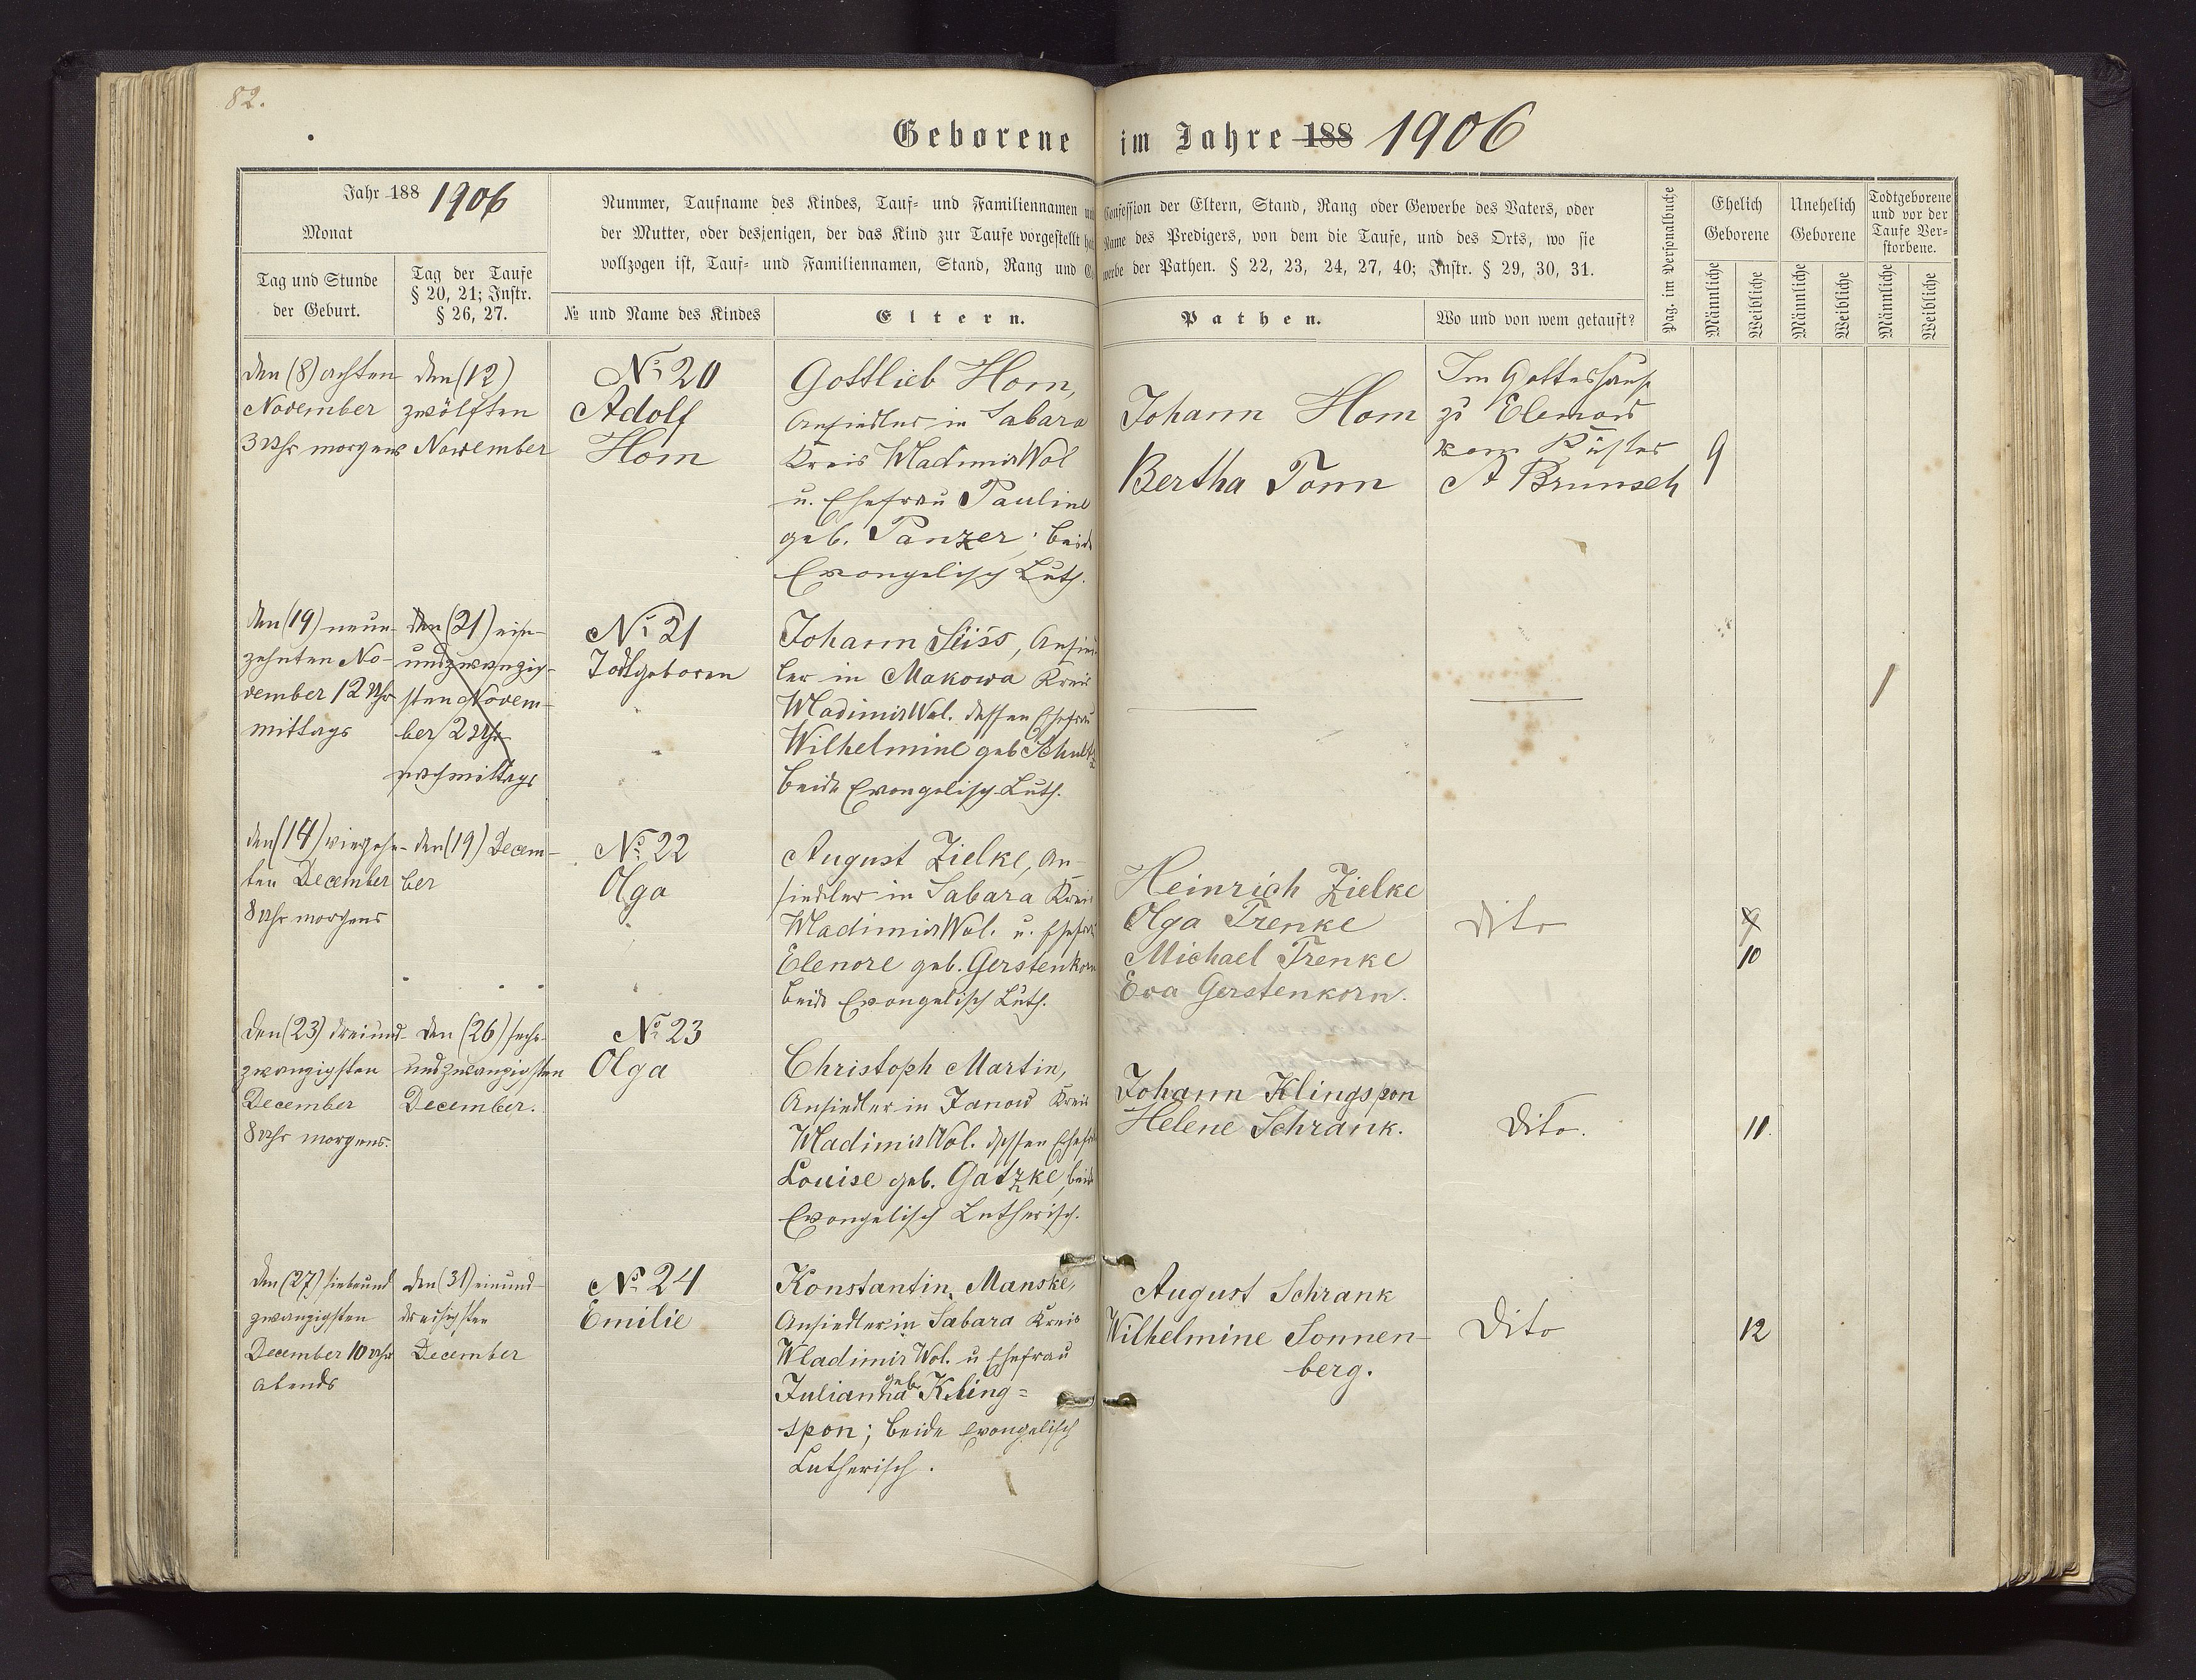 82.
Geborene im Jahre 188 1906
Jahr 188 1906
Monat
Tag und Stunde
der Geburt.
Tag der Taufe
§ 20, 21; Instr.
§ 26, 27.
Nummer, Taufname des Kindes, Tauf- und Familiennamen und Confession der Eltern, Stand, Rang oder Gewerbe des Vaters, oder
der Mutter, oder desjenigen, der das Kind zur Taufe vorgestellt hat Name des Predigers, von dem die Taufe, und des Orts, wo sie
vollzogen ist, Tauf- und Familiennamen, Stand, Rang und Gewerbe der Pathen. § 22, 23, 24, 27, 40; Instr. § 29, 30, 31.
№ und Name des Kindes
Eltern.
Pathen.
Wo und von wem getauft?
Pag. im Personalbuche
Ehelich
Geborene
Unehelich
Geborene
Todtgeborene
und vor der
Taufe Ver-
storbene.
Männliche
Weibliche
Männliche
Weibliche
Männliche
Weibliche
den (8) achten
November
3 Uhr morgens
den (12)
zwölften
November
№ 20
Adolf
Hom
Gottlieb Hom,
Ansiedler in Sabara
Kreis Wladimir Wol
u. Ehefrau Pauline
geb. Panzer; beide
Evangelisch Luth.
Johann Hom
Bertha Tonn
Im Gotteshause
zu
vom Küster
A Brunsch
9
den (19) neun-
zehnten No-
vember 12 Uhr
mittags
den (21) ein-
undzwanzig-
sten Novem-
ber 2 Uhr
nachmittags
№ 21
Todtgeboren
Johann Seiss, Ansied-
ler in Makowa Kreis
Wladimir Wol. dessen Ehefrau
Wilhelmine geb Schultz
beide Evangelisch-Luth.
1
den (14) vierzehn-
ten December
8 Uhr morgens
den (19) Decem-
ber
№ 22
Olga
August Zielke, An-
siedler in Sabara Kreis
Wladimir Wol. u. Ehefrau
Elenore geb. Gerstenkorn
beide Evangelisch Luth.
Heinrich Zielke
Olga Trenke
Michael Trenke
Eva Gerstenkorn.
dito
9
10
den (23) dreiund-
zwanzigsten
December
8 Uhr morgens.
den (26) sechs-
undzwanzigsten
December.
№ 23
Olga
Christoph Martin,
Ansiedler in Janow Kreis
Wladimir Wol. dessen Ehefrau
Louise geb. Gatzke, beide
Evangelisch Lutherisch.
Johann Klingspon
Helene Schrank.
Dito.
11.
den (27) siebeund
zwanzigsten
December 10 Uhr
abends
den (31) einund-
dreisigsten
December
№ 24
Emilie
Konstantin Manske,
Ansiedler in Sabara Kreis
Wladimir Wol. u Ehefrau
Julianna geb. Kling=
spon; beide evangelisch
Lutherisch.
August Schrank
Wilhelmine Sonnen-
berg.
Dito
12